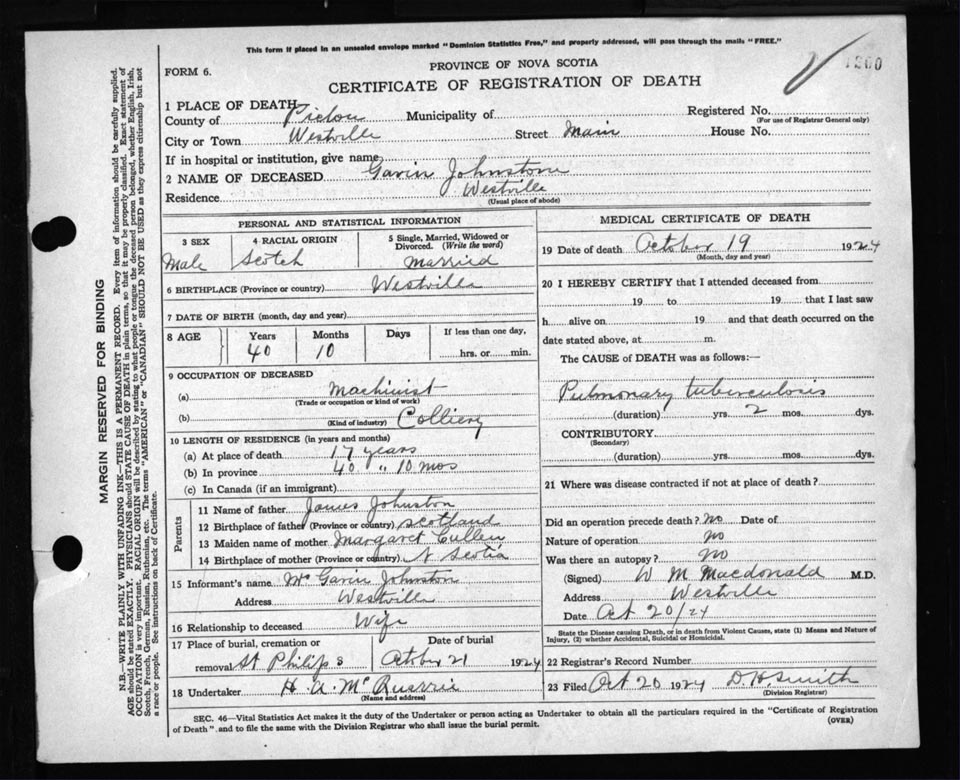 This form if placed in an unsealed envelope marked "Dominion Statistics Free," and properly addressed, will pass through the mails "FREE."
PROVINCE OF NOVA SCOTIA
FORM 6.
CERTIFICATE OF REGISTRATION OF DEATH
1 PLACE OF DEATH
County of Pictou Municipality of Registered No.
(For use of Registrar General only)
City or Town Westville Street Main House No.
If in hospital or institution, give name
2 NAME OF DECEASED Gavin Johnstone
Residence Westville
(Usual place of abode)
PERSONAL AND STATISTICAL INFORMATION
3 SEX 4 RACIAL ORIGIN 5 Single, Married, Widowed or Divorced. (Write the word)
Male Scotch Married
6 BIRTHPLACE (Province or country) Westville
7 DATE OF BIRTH (month, day and year)
8 AGE Years Months Days If less than one day,
40 10 hrs. or min.
9 OCCUPATION OF DECEASED
(a) Machinist
(Trade or occupation or kind of work)
(b) Colliery
(Kind of industry)
10 LENGTH OF RESIDENCE (in years and months)
(a) At place of death 17 years
(b) In province 40 " 10 mos
(c) In Canada (if an immigrant)
Parents
11 Name of father James Johnston
12 Birthplace of father (Province or country) Scotland
13 Maiden name of mother Margaret Cullen
14 Birthplace of mother (Province or country) N Scotia
15 Informant's name Mrs Gavin Johnston
Address Westville
16 Relationship to deceased Wife
17 Place of burial, cremation or removal St Philips Date of burial October 21 1924
18 Undertaker H. A. McQuarrie
(Name and address)
MEDICAL CERTIFICATE OF DEATH
19 Date of death October 19 1924
(Month, day and year)
20 I HEREBY CERTIFY that I attended deceased from
19 to 19 that I last saw
h alive on 19 and that death occurred on the
date stated above, at m.
The CAUSE of DEATH was as follows:—
Pulmonary tuberculosis
(duration) yrs. 2 mos. dys.
CONTRIBUTORY
(Secondary)
(duration) yrs. mos. dys.
21 Where was disease contracted if not at place of death?
Did an operation precede death? No Date of
Nature of operation no
Was there an autopsy? no
(Signed) W M Macdonald M.D.
Address Westville
Date Oct 20/24
State the Disease causing Death, or in death from Violent Causes, state (1) Means and Nature of Injury, (2) whether Accidental, Suicidal or Homicidal.
22 Registrar's Record Number
23 Filed Oct 20 1924 D. H. Smith
(Division Registrar)
SEC. 46—Vital Statistics Act makes it the duty of the Undertaker or person acting as Undertaker to obtain all the particulars required in the "Certificate of Registration
of Death" and to file the same with the Division Registrar who shall issue the burial permit. (OVER)
MARGIN RESERVED FOR BINDING
N.B.—WRITE PLAINLY WITH UNFADING INK—THIS IS A PERMANENT RECORD. Every item of information should be carefully supplied.
AGE should be stated EXACTLY. PHYSICIANS should STATE CAUSE OF DEATH in plain terms, so that it may be properly classified. Exact statement of
OCCUPATION is very important. RACIAL ORIGIN will be described by stating to what people or tongue the deceased person belonged, whether English, Irish,
Scotch, French, German, Russian, Ruthenian, etc. The terms "AMERICAN" or "CANADIAN" SHOULD NOT BE USED as they express citizenship but not
a race or people. See instructions on back of Certificate.